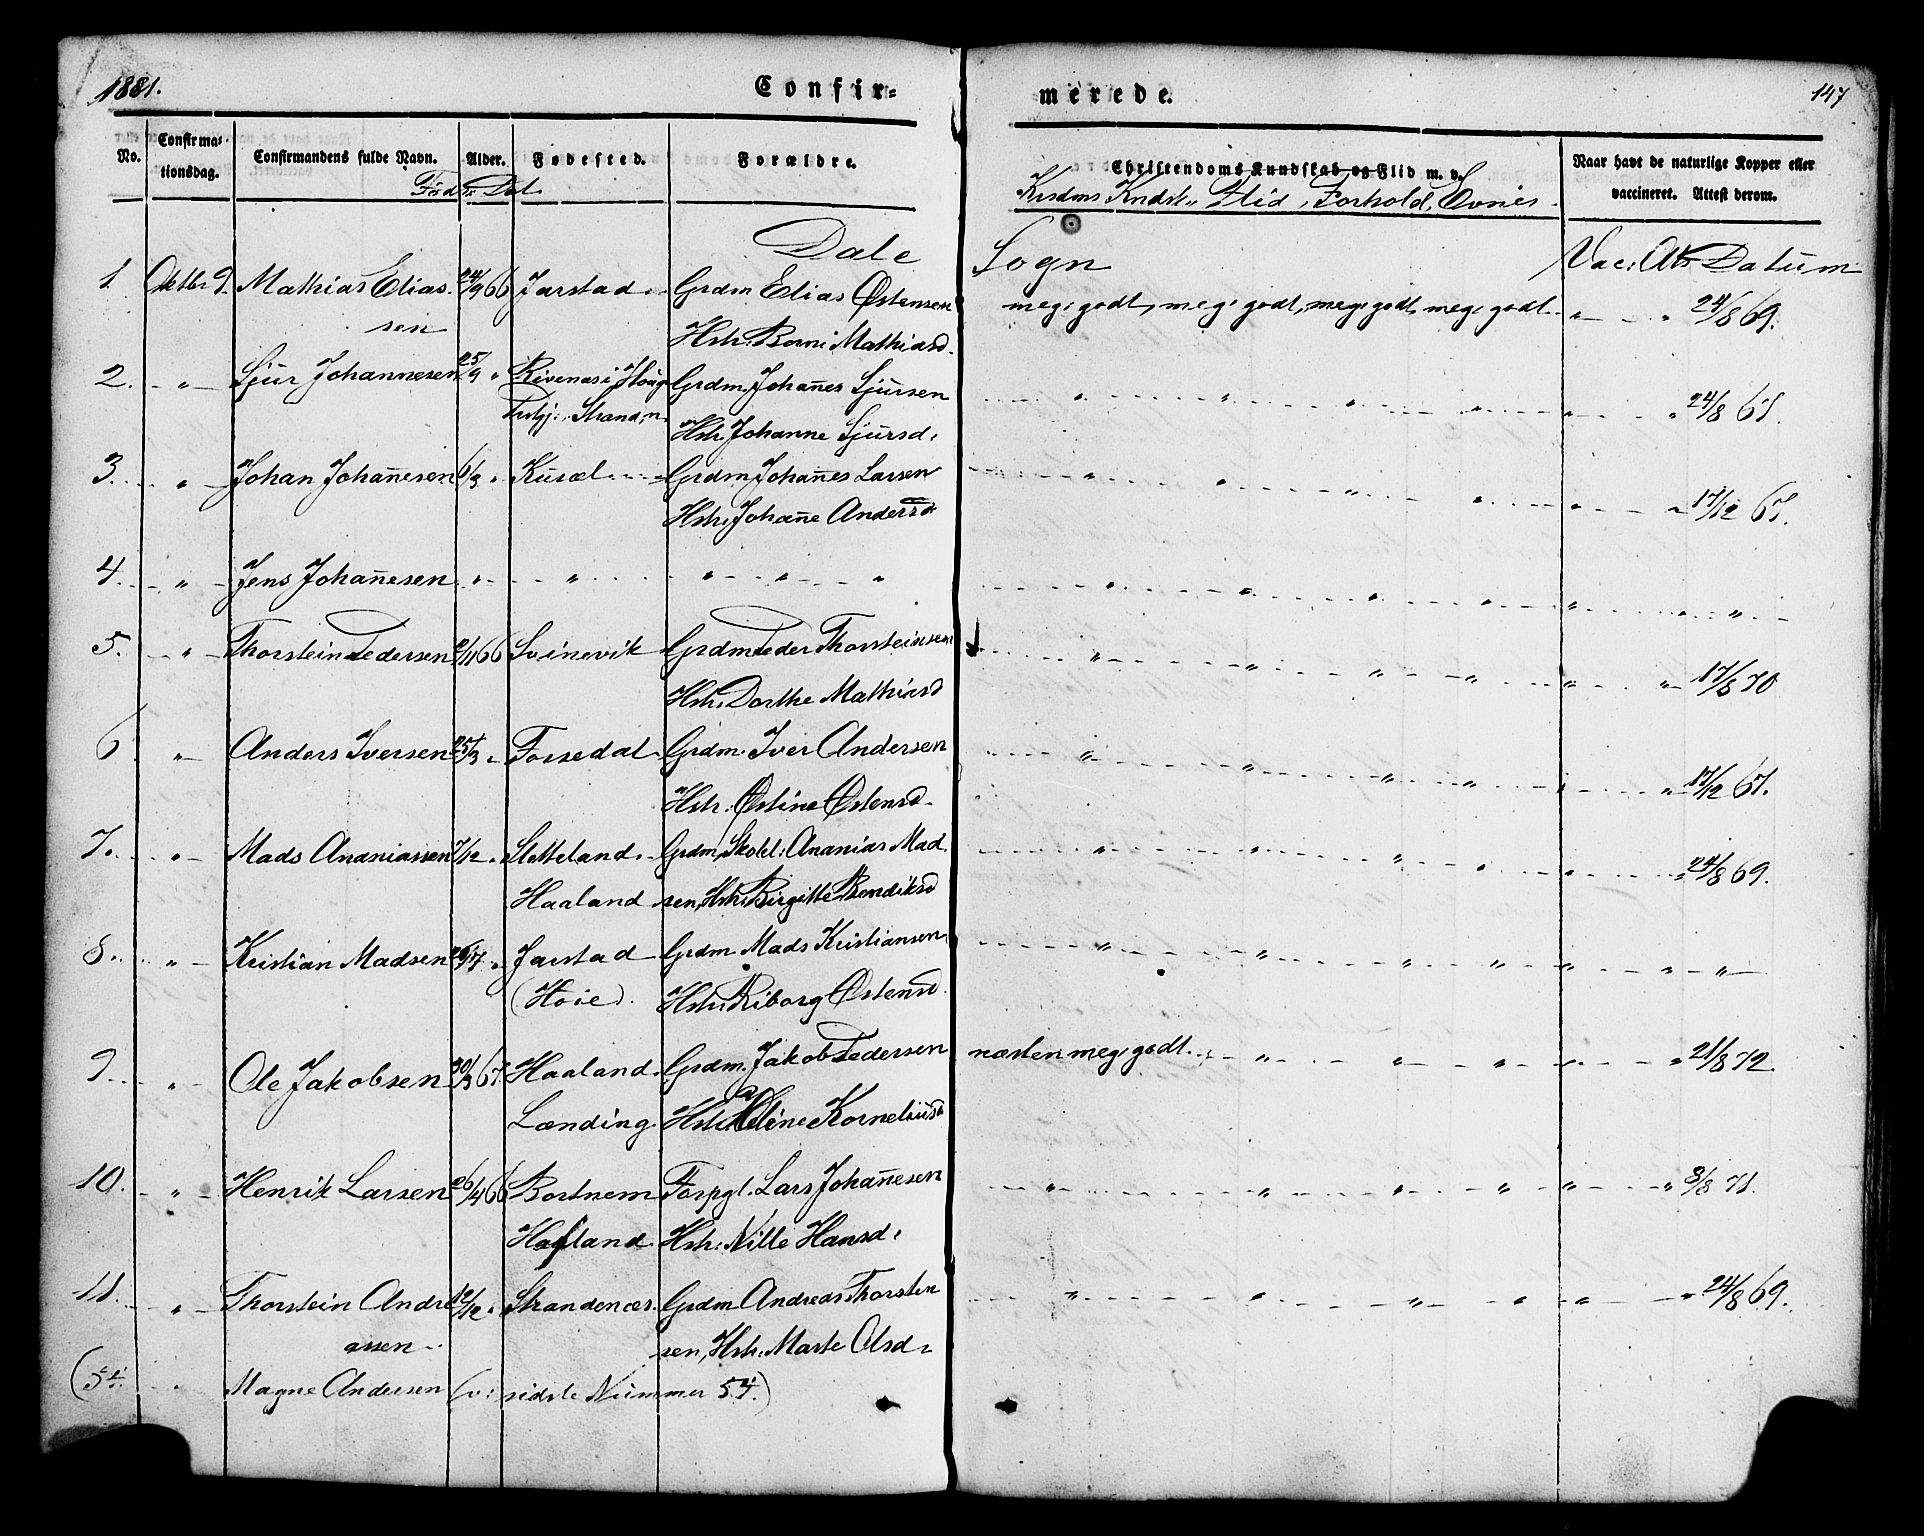 1881.
Confir=
merede.
147
No.
Confirma-
tionsdag.
Confirmandens fulde Navn.
Alder.
Fødested.
Forældre.
Christendoms Kundskab og Flid m. v.
Naar havt de naturlige Kopper eller
vaccineret. Attest derom.
Føds: Dat.
Krsdms Kndsk., Flid, Forhold, Evner.
Dale Sogn Vac: Att: Datum
1. Oktbr 9. Mathias Elias 24/9 66 Jarstad. Grdm Elias Østensen meg: godt, meg: godt, meg: godt, meg: godt. „ „ 24/8 69.
sen Hstr. Berni Mathiasd.
2. „ Sjur Johannesen 25/9 „ Rivenæs i Houg Grdm. Johañes Sjursen „ „ „ „ „ „ 24/8 67.
Prstgj: Strandn Hstr. Johanne Sjursd:
3. „ Johan Johañesen 6/3 „ Kusæl Grdm Johañes Larsen „ „ „ „ „ „ 17/12 67.
Hstr. Johañe Andersd.
4. „ Jens Johañesen „ „ „ „ „ „ „ „ „ „ „
5. „ Thorstein Pedersen 2/11 66 Svinevik Grdm Peder Thorsteinsen „ „ „ „ „ „ 17/8 70
Hstr. Dorthe Mathiasd
6 „ Anders Iversen 25/3 „ Fossedal Grdm. Iver Andersen „ „ „ „ „ 17/12 67.
Hstr. Østine Østensd.
7. „ Mads Ananiassen 7/12 „ Sletteland. Grdm, Skolel: Ananias Mad „ „ „ „ „ „ 24/8 69.
Haaland sen, Hstr. Birgitte Bendiksd
8. „ Kristian Madsen 26/7 „ Jarstad Grdm. Mads Kristiansen „ „ „ „ „ „ „
(Høie). Hstr. Riborg Østensd.
9. „ Ole Jakobsen 30/3 67. Haaland. Grdm. Jakob Pedersen næsten meg: godt. „ „ „ „ „ 21/8 72.
Lænding. Hstr. Heline Korneliusd
10. „ Henrik Larsen 26/4 66 Bortnem Forpgt. Lars Johañesen „ „ „ „ „ „ 3/8 71.
Hafland. Hstr. Nille Hansd:
11. „ Thorstein Andre 12/12 „ Strandenæs. Grdm Andreas Thorsten „ „ „ „ „ „ 24/8 69.
assen. sen, Hstr. Marte Olsd.
(54. „ Magne Andersen (v: sidste Nummer 54.)